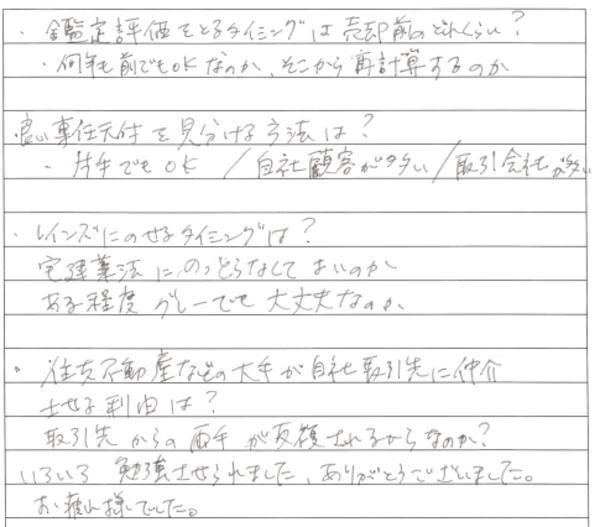 ・鑑定評価をとるタイミングは売却前のどれくらい?
・何年も前でもOKなのか、そこから再計算するのか
良い専任元付を見分ける方法は?
・片手でもOK / 自社顧客が多い / 取引会社が多い
・レインズにのせるタイミングは?
宅建業法にのっとらなくてよいのか
ある程度グレーでも大丈夫なのか、
・住友不動産などの大手が自社取引先に仲介
させる利由は?
取引先からの両手が反復されるからなのか?
いろいろ勉強させられました、ありがとうございました。
お疲れ様でした。